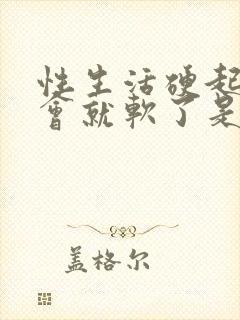 性生活硬起
會就軟了是
盖格尔